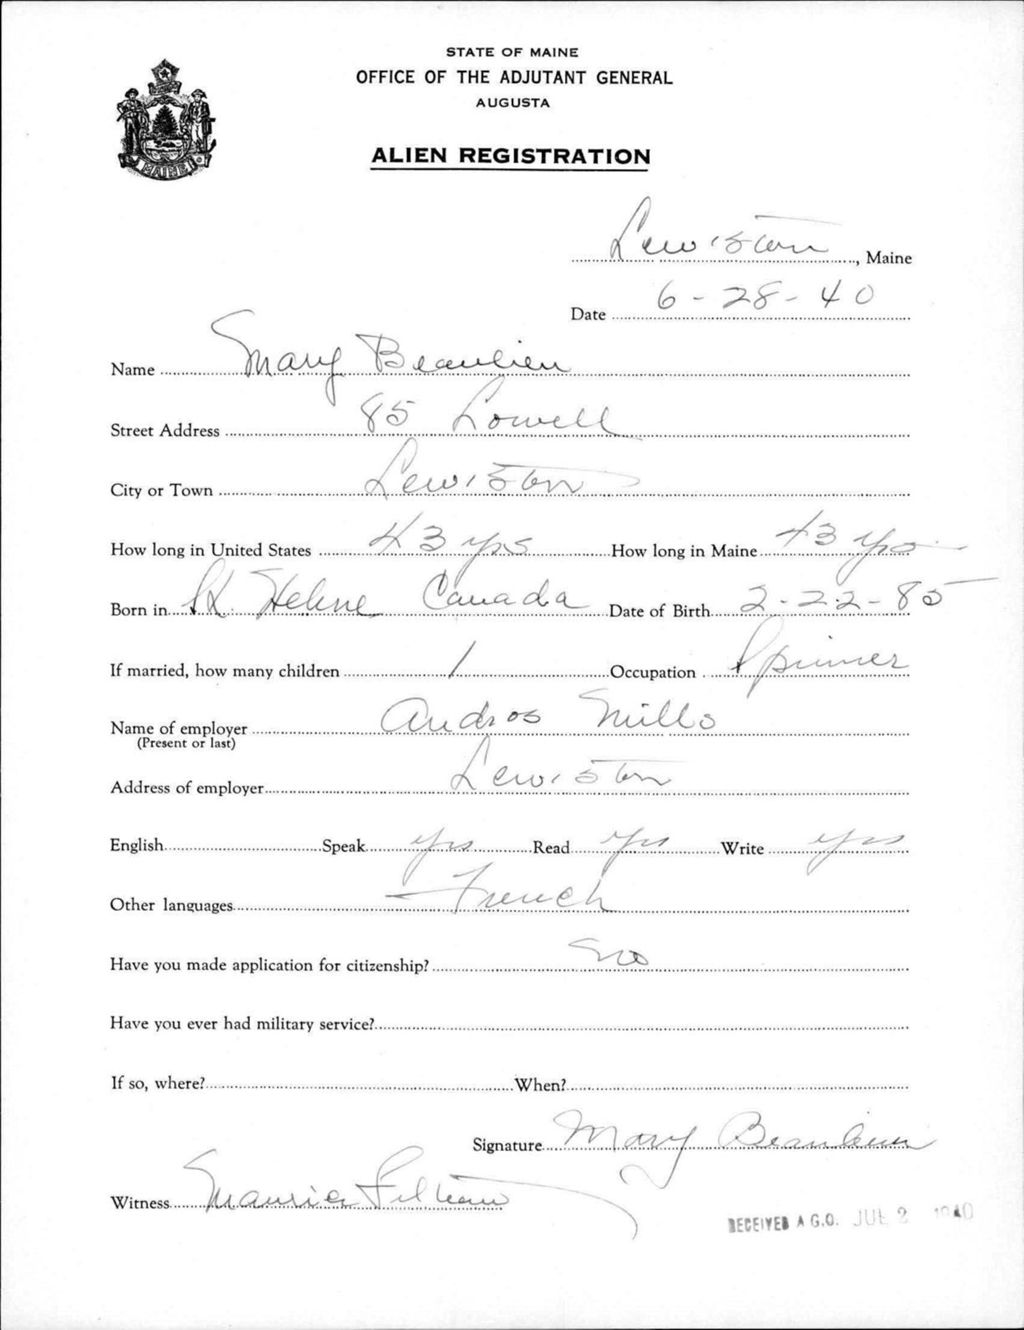 STATE OF MAINE
OFFICE OF THE ADJUTANT GENERAL
AUGUSTA
ALIEN REGISTRATION
MAINE
Lewiston, Maine
Date 6-28-40
Name Mary Beaulieu
Street Address 85 Lowell
City or Town Lewiston
How long in United States 43 yrs How long in Maine 43 yrs
Born in St. Helene Canada Date of Birth 2-22-85
If married, how many children 1 Occupation Spinner
Name of employer Andros Mills
(Present or last)
Address of employer Lewiston
English Speak yes Read yes Write yes
Other languages French
Have you made application for citizenship? No
Have you ever had military service?
If so, where? When?
Signature Mary Beaulieu
Witness Maurice
RECEIVED A.G.O. JUL 2 1940